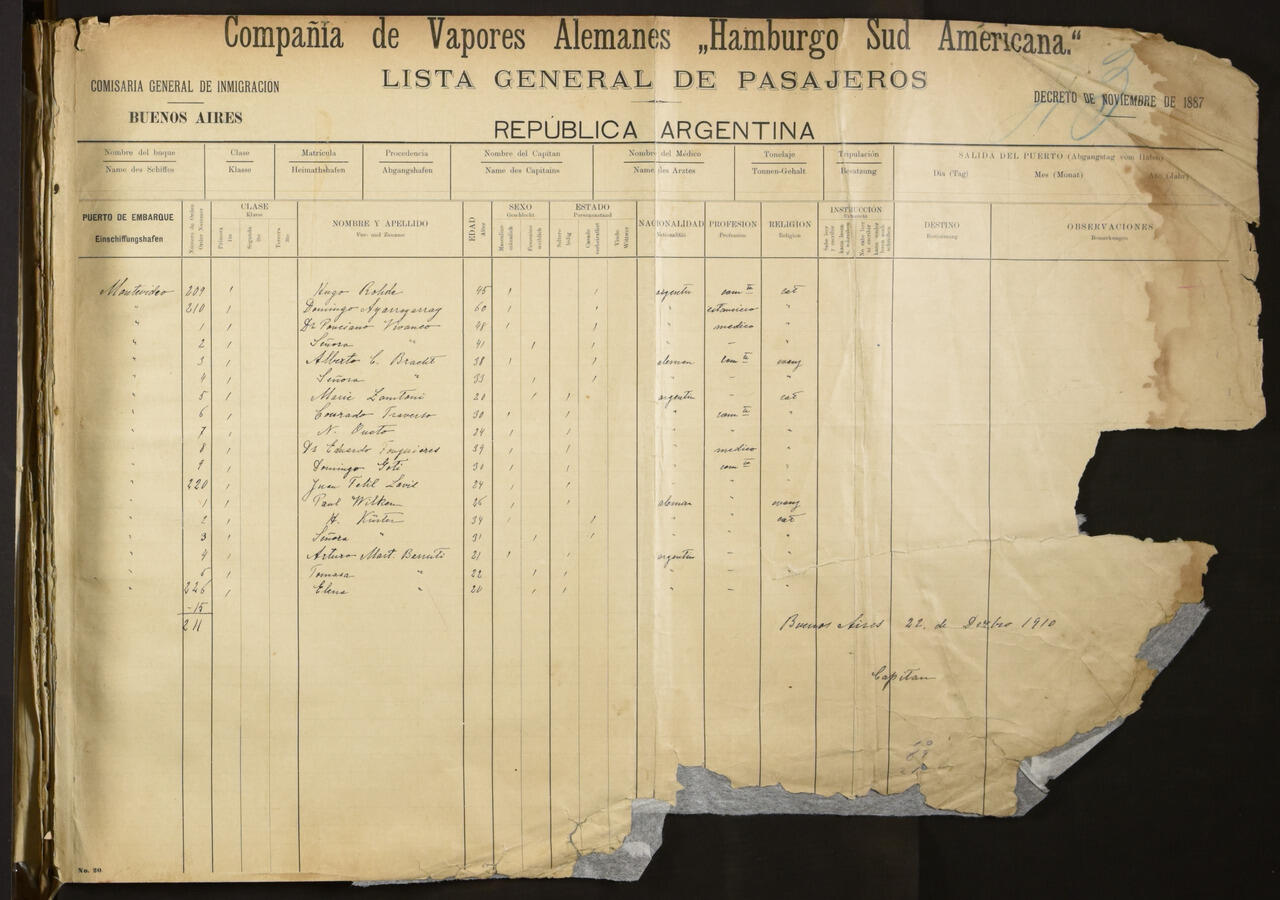 Compañía de Vapores Alemanes „Hamburgo Sud Américana.“
COMISARIA GENERAL DE INMIGRACION
LISTA GENERAL DE PASAJEROS
DECRETO DE NOVIEMBRE DE 1887
BUENOS AIRES
REPÚBLICA ARGENTINA
Nombre del buque Clase Matricula Procedencia Nombre del Capitan Nombre del Médico Tonelaje Tripulación SALIDA DEL PUERTO (Abgangstag vom Hafen)
Name des Schiffes Klasse Heimathshafen Abgangshafen Name des Capitains Name des Arztes Tonnen-Gehalt Besatzung Dia (Tag) Mes (Monat) Año (Jahr)
PUERTO DE EMBARQUE Número de Orden CLASE NOMBRE Y APELLIDO EDAD SEXO ESTADO NACIONALIDAD PROFESION RELIGION INSTRUCCIÓN DESTINO OBSERVACIONES
Einschiffungshafen Order Nummer Klasse Primera Segunda Tercera Vor- und Zuname Alter Geschlecht Masculino männlich Femenino weiblich Personenstand Soltero ledig Casado verheirathet Viudo Wittwer Nationalität Profession Religion Bestimmung Bemerkungen
Montevideo 209 1 Hugo Rohde 45 1 1 argentin comte cat
" 210 1 Domingo Ayarragaray 60 1 1 " estanciero "
" 1 1 Dr Ponciano Vivanco 48 1 1 " medico "
" 2 1 Señora " 41 1 1 " - "
" 3 1 Alberto C. Bracht 38 1 1 aleman comte evang
" 4 1 Señora " 33 1 1 " - "
" 5 1 Marie 20 1 1 argentin - cat
" 6 1 Conrado Traverso 30 1 1 " comte "
" 7 1 N. 24 1 1 " " "
" 8 1 Dr Eduardo 39 1 1 " medico "
" 9 1 Domingo Goti 30 1 1 " comte "
" 220 1 Juan 24 1 1 " " "
" 1 1 Paul Wilken 26 1 1 aleman " evang
" 2 1 H. Küster 34 1 1 " " cat
" 3 1 Señora " 31 1 1 " - "
" 4 1 Arturo Mart. Berruti 21 1 1 argentin - "
" 5 1 Tomasa " 22 1 1 " - "
" 226 1 Elena " 20 1 1 " - "
-15
211
Buenos Aires 22. de Dizbro 1910
Capitan
No. 20